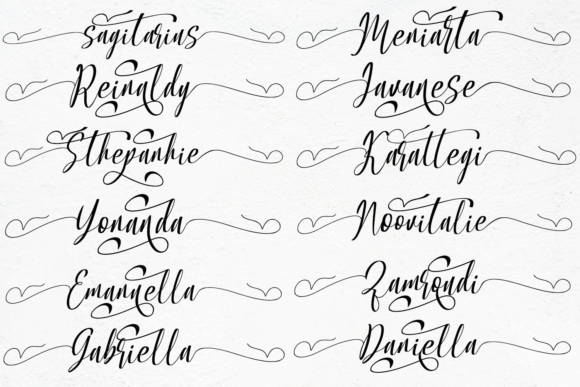 sagitarius
Meniarta
Reinaldy
Javanese
Sthepanhie
Karattegi
Yonanda
Noovitalie
Emanuella
Zamroudi
Gabriella
Daniella